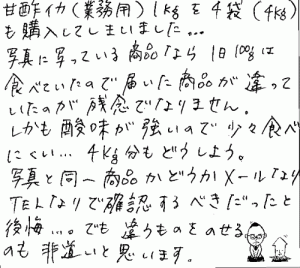 甘酢イカ(業務用)1kgを4袋(4kg)
も購入してしまいました…
写真に写っている商品なら1日100gは
食べていたので届いた商品が違って
いたのが残念でなりません。
しかも酸味が強いので少々食べ
にくい…4kg分もどうしよう。
写真と同一商品かどうかメールなり
TELなりで確認するべきだったと
後悔…。でも違うものをのせる
のも非道いと思います。